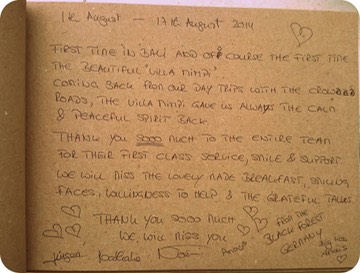 1st August – 17th August 2014
FIRST TIME IN BALI AND OF COURSE THE FIRST TIME
THE BEAUTIFUL "VILLA MIMPI"
COMING BACK FROM OUR DAY TRIPS WITH THE CROWDED
ROADS, THE VILLA MIMPI GAVE US ALWAYS THE CALM
& PEACEFUL SPIRIT BACK.
THANK YOU SOOO MUCH TO THE ENTIRE TEAM
FOR THEIR FIRST CLASS SERVICE, SMILE & SUPPORT
WE WILL MISS THE LOVELY MADE BREAKFAST, SMILING
FACES, WILLINGNESS TO HELP & THE GRATEFUL TALKS.
THANK YOU SOOO MUCH
WE WILL MISS YOU
FROM THE
BLACK FOREST
GERMANY
Jürgen Nathalie